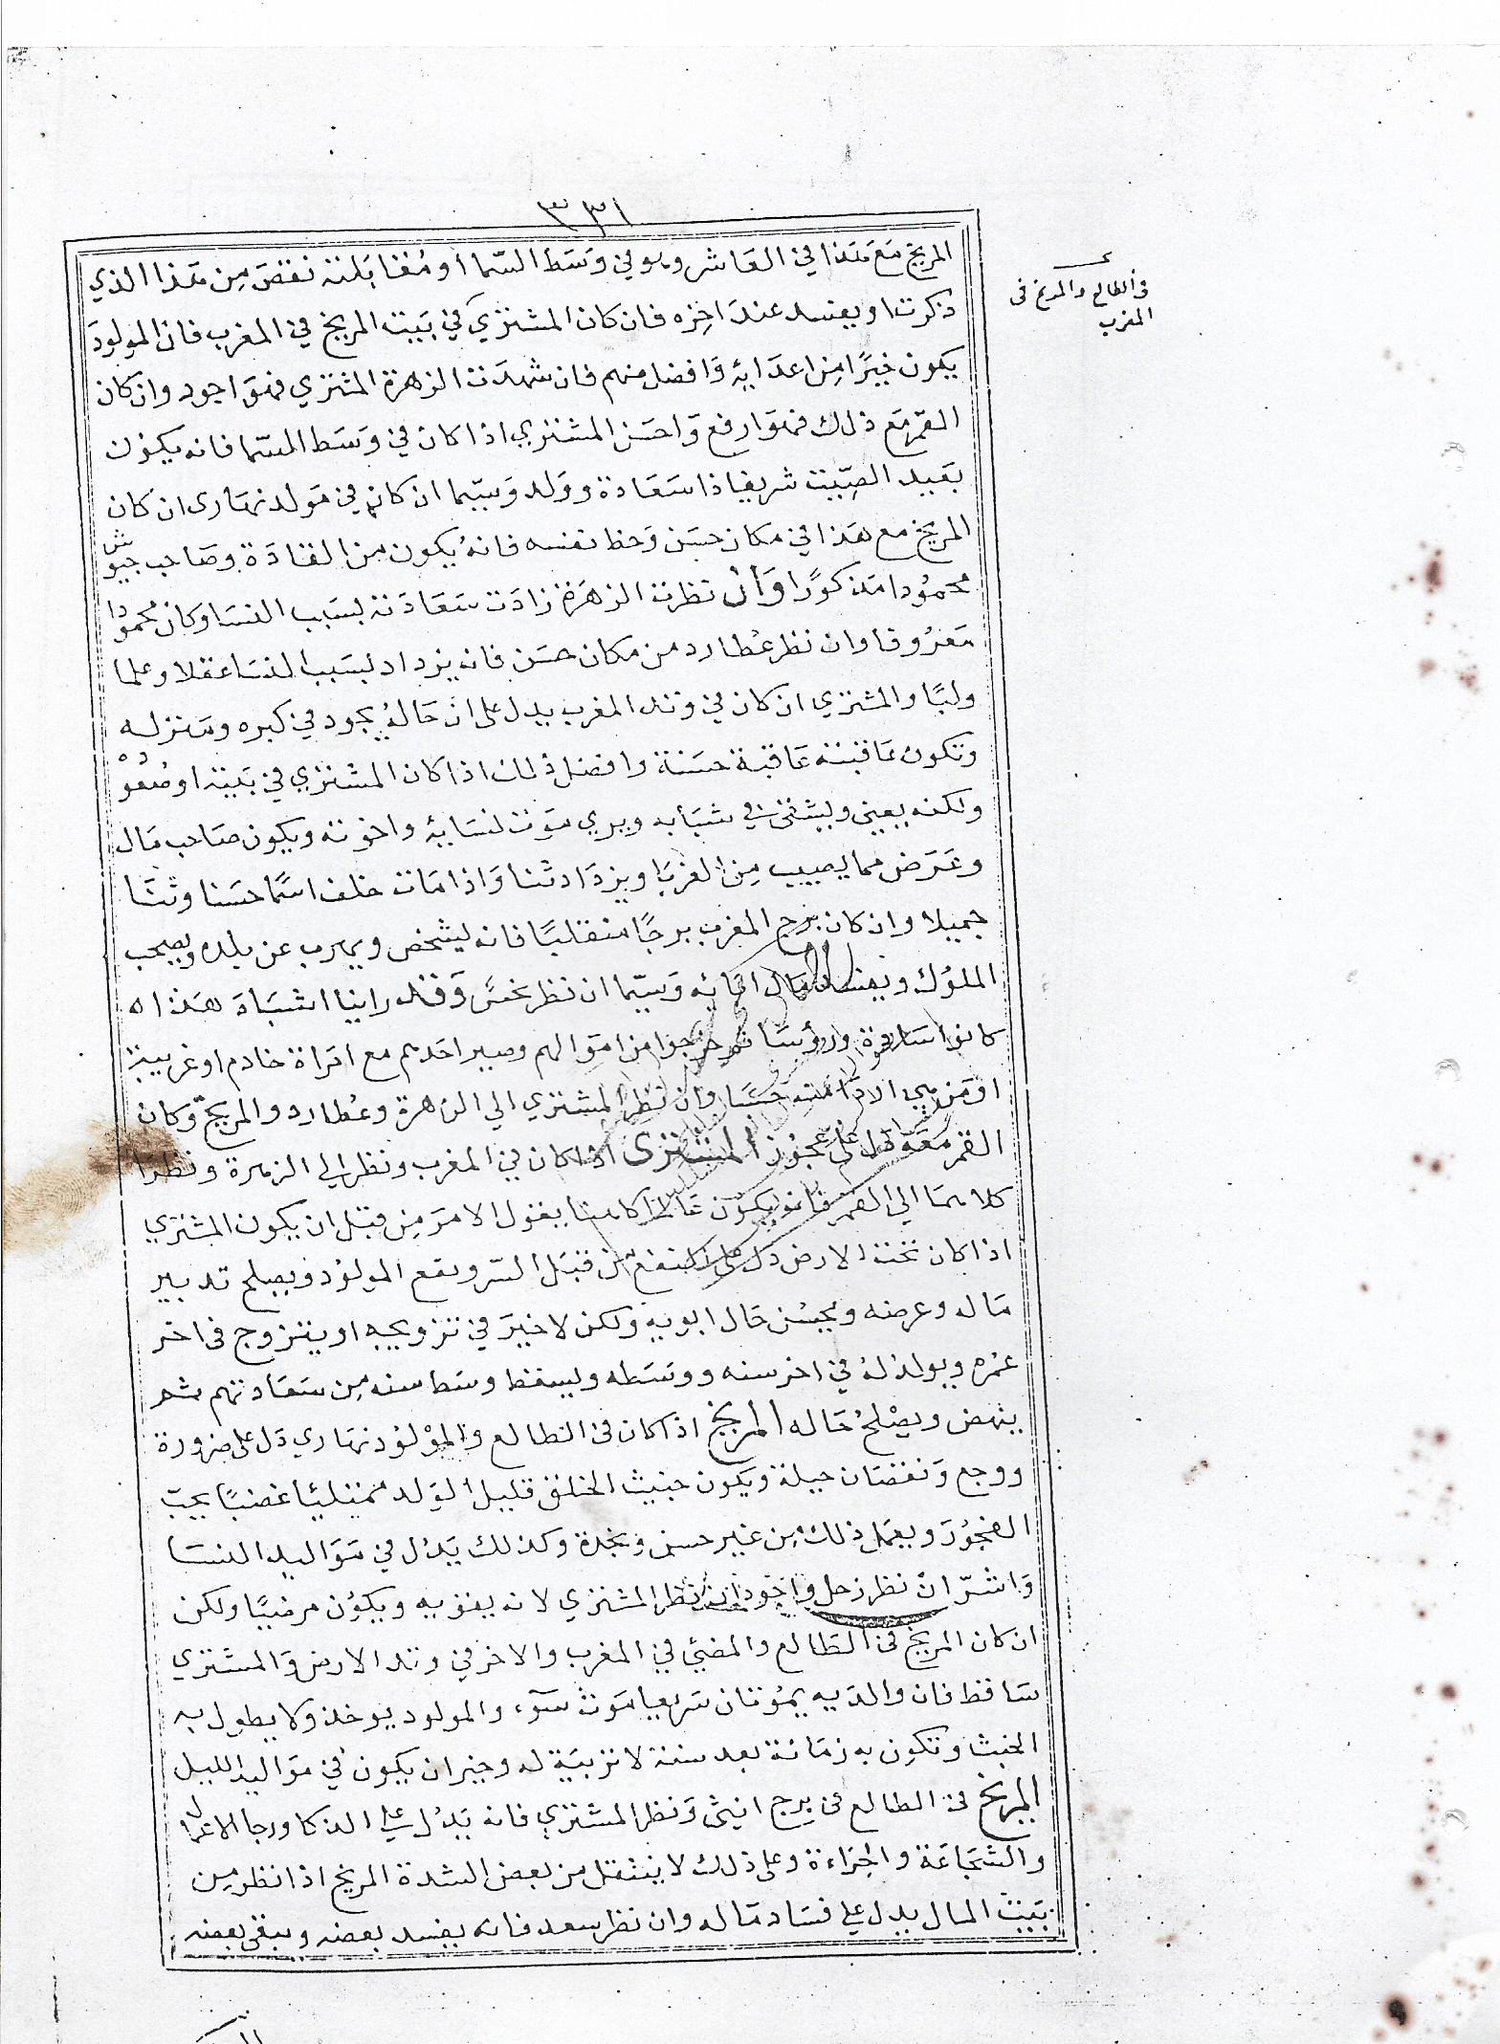 ٣٣١
في الطالع والمريخ في
المغرب
المريخ مع هذا في العاشر وهو في وسط السما او مقابلته نقص من هذا الذي
ذكرت او يفسد عند اخره فان كان المشتري في بيت المريخ في المغرب فان المولود
يكون خيرًا من اعدايه وافضل منهم فان شهدت الزهرة المشتري فهو اجود وان كان
القمر مع ذلك فهو ارفع واحسن المشتري اذا كان في وسط السما فانه يكون
بعيد الصيت شريفا ذا سعادة وولد وسيما ان كان في مولد نهارى ان كان
المريخ مع هذا في مكان حسن وحظ نفسه فانه يكون من القادة وصاحب جيوش
محمودا مذكورًا وان نظرت الزهرة زادت سعادته بسبب النسا وكان محمودا
معروفا وان نظر عطارد من مكان حسن فانه يزداد بسبب النسا عقلا وعلما
ولبًا والمشتري ان كان في وتد المغرب يدل على ان حاله يجود في كبره ومنزله
وتكون عاقبته عاقبة حسنة وافضل ذلك اذا كان المشتري في بيته او صعوده
ولكنه يعيى ويشقى في شبابه ويري موت نسايه واخوته ويكون صاحب مال
وعرض مما يصيب من الغربا ويزداد ثنا واذا مات خلف اسمًا حسنا وثنا
جميلا وان كان برج المغرب برجًا منقلبًا فانه ليشخص ويهرب عن بلده ويصحب
الملوك ويفسد مال ابائه وسيما ان نظر نحس وقد راينا اشباه هذا اه
كانوا سادة ورؤسا خرجوا من اموالهم وصير احدهم مع امراة خادم او غريبة
او من هي الادامته حسبا وان نظر المشتري الي الزهرة وعطارد والمريخ وكان
القمر معه دل على عجوز المشتري اذا كان في المغرب ونظر الي الزهرة ونظرا
كلاهما الي القمر فانه يكون عالما كاهنا يقول الامر من قبل ان يكون المشتري
اذا كان تحت الارض دل على من قبل السر ويقع المولود ويصلح تدبير
ماله وعرضه ويحسن حال ابويه ولكن لا خير في تزويجه او يتزوج في اخر
عمره ويولد له في اخر سنه ووسطه ويسقط وسط سنه من سعادتهم ثم
ينهض ويصلح حاله المريخ اذا كان في الطالع والمولود نهاري دل على ضرورة
ووجع ونقصان حيلة ويكون خبيث الخلق قليل الولد ممتليًا غضبًا يحب
الفجور ويعمل ذلك من غير حسن ونجدة وكذلك يدل في مواليد النسا
واشر ان نظر زحل واجود ان نظر المشتري لانه يقويه ويكون مرضيًا ولكن
ان كان المريخ في الطالع والمضي في المغرب والاخر في وتد الارض والمشتري
ساقط فان والديه يموتان سريعا موت سوء والمولود يوخذ ولا يطول به
الخبث وتكون به زمانة بعد سنة لا تربية له وخير ان يكون في مواليد الليل
المريخ في الطالع في برج انيثى ونظر المشتري فانه يدل على الذكا ورجا الاعمال
والشجاعة والجراءة وعلى ذلك لا ينتقل من بعض الشدة المريخ اذا نظر من
بيت المال يدل على فساد ماله وان نظر سعد فانه يفسد بعضه ويبقى بعضه